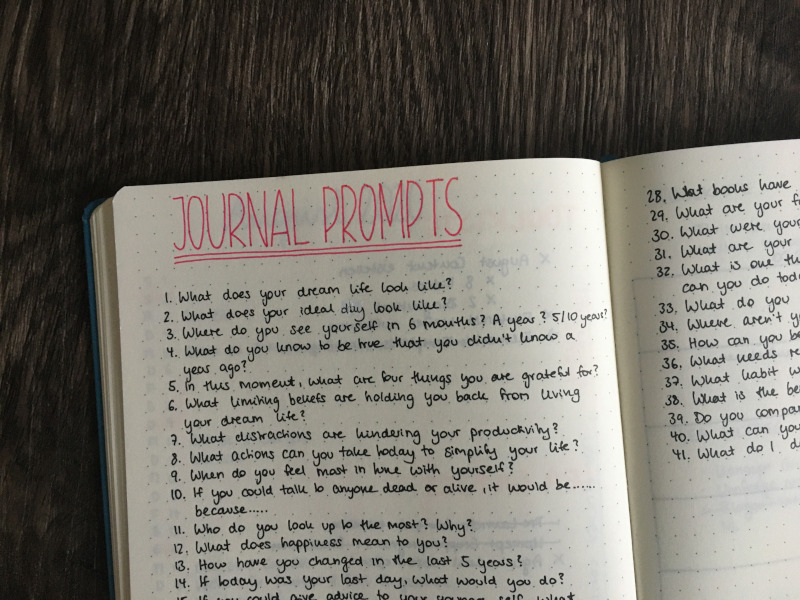 JOURNAL PROMPTS
1. What does your dream life look like?
2. What does your ideal day look like?
3. Where do you see yourself in 6 months? A year? 5/10 years?
4. What do you know to be true that you didn't know a
year ago?
5. In this moment, what are four things you are grateful for?
6. What limiting beliefs are holding you back from living
your dream life?
7. What distractions are hindering your productivity?
8. What actions can you take today to simplify your life?
9. When do you feel most in tune with yourself?
10. If you could talk to anyone dead or alive, it would be......
because.....
11. Who do you look up to the most? Why?
12. What does happiness mean to you?
13. How have you changed in the last 5 years?
14. If today was your last day, what would you do?
15. If you could give advice to your younger self, what
28. What books have
29. What are your
30. What were your
31. What are your
32. What is one
can you do
33. What do you
34. Where aren't
35. How can you
36. What needs
37. What habit
38. What is the
39. Do you
40. What can you
41. What do I